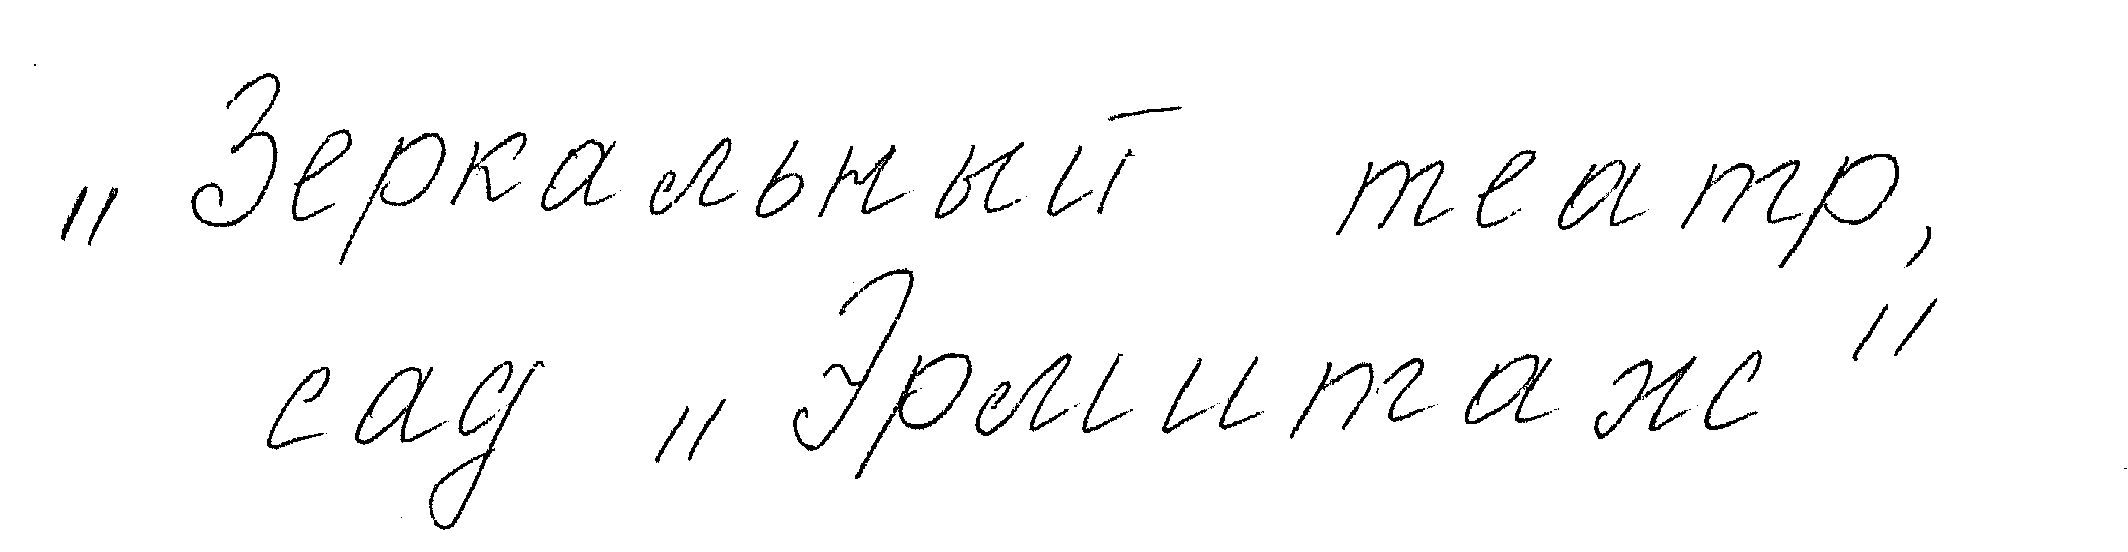 „Зеркальный театр,
сад „Эрмитаж"